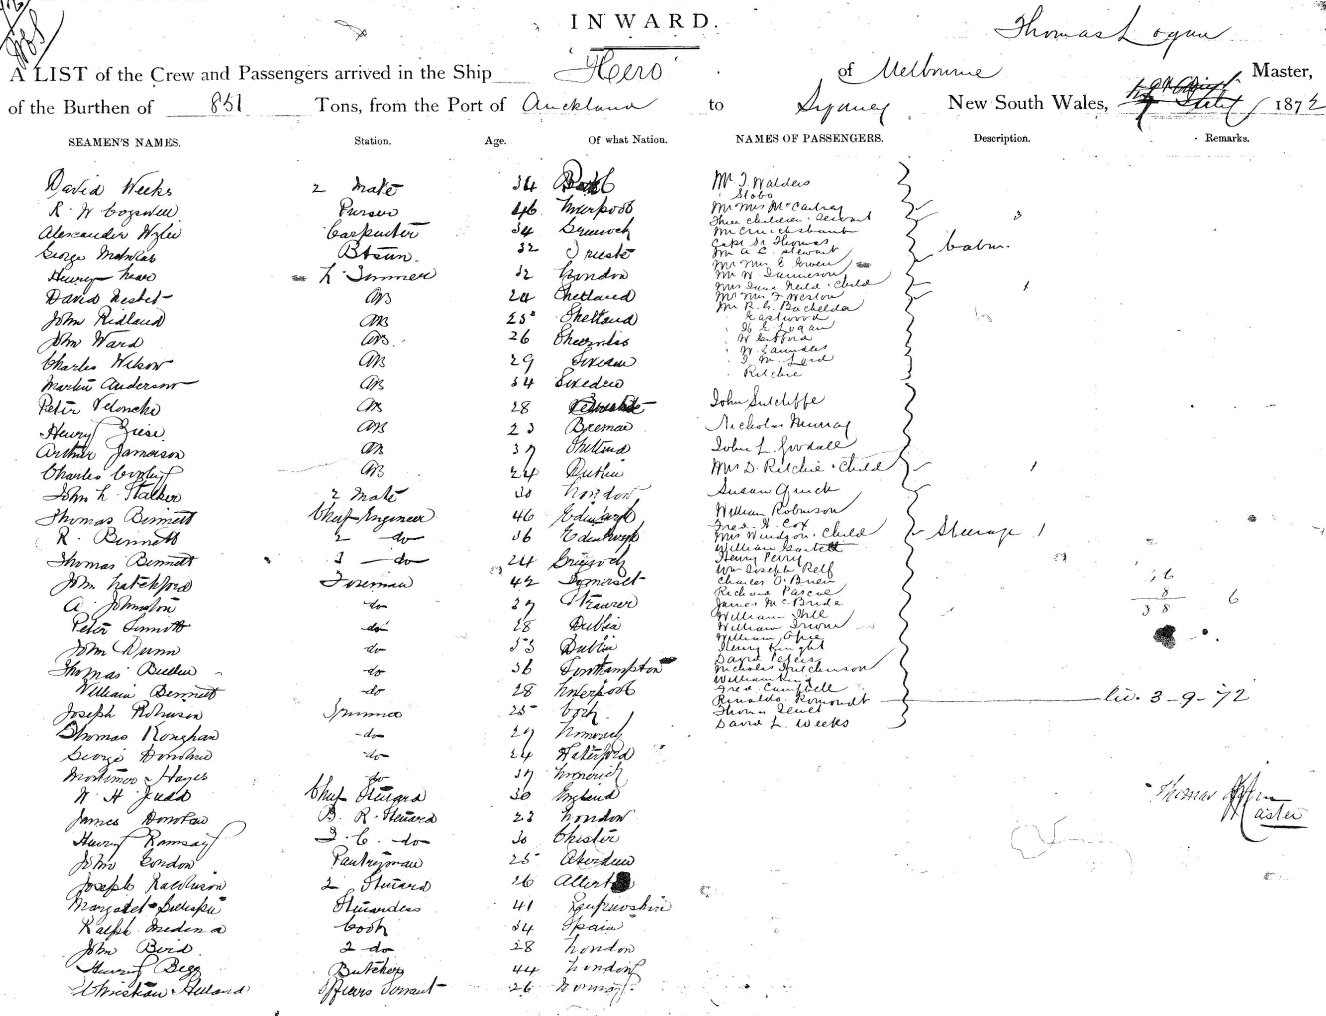 INWARD.
Thomas Logan
A LIST of the Crew and Passengers arrived in the Ship Hero of Melbourne Master,
of the Burthen of 851 Tons, from the Port of Auckland to Sydney New South Wales, 1872
SEAMEN'S NAMES. Station. Age. Of what Nation. NAMES OF PASSENGERS. Description. Remarks.
David Weeks 2 Mate 34
R. W Cogswell Purser 46 Liverpool
Alexander Wylie Carpenter 34 Greenock
George Bosun. 32 Trieste
Henry L. Trimmer 32 London
David Nesbet AB 24 Shetland
John Ridland AB 25 Shetland
John Ward AB. 26 Sheerness
Charles Wilson AB 29 Sweden
Martin Anderson AB 34 Sweden
Peter AB 28
Henry Giese AB 23 Bremen
Arthur Jamason AB 37 Shetland
Charles AB 24 Dublin
John L. Stalker 2 Mate 30 London
Thomas Bennett Chief Engineer 46 Edinburgh
R. Bennett 2 do 36 Edinburgh
Thomas Bennett 3 do 24 Greenock
John Latchford Foreman 42 Somerset
A. Johnston do 27
Peter Sinnott do 28 Dublin
John Dunn do 33 Dublin
Thomas Butler do 36 Southampton
William Bennett do 28 Liverpool
Joseph Robinson Trimmer 25 Cork
Thomas Ronghan do 27 Limerick
George Donohue do 24 Waterford
Mortimer Hayes do 37 Limerick
W H Judd Chief Steward 30 England
James Donovan B. R. Steward 23 London
Henry Ramsay F. C. do 30 Chester
John Gordon Pantryman 25 Aberdeen
Joseph Rawlinson 2 Steward 26
Margaret Gillespie Stewardess 41 Renfrewshire
Ralph Medina Cook 34 Spain
John Bird 2 do 28 London
Henry Begg Butcher 44 London
Christian Officers Servant 26 Norway
Mr T. Walders
Stobo
Mr Mrs McCartney
Three children Servant
Mr Cruickshank
Capt Sr Thomas
Mr A. C. Stewart
Mr Mrs E Owen
Mr W Jamieson
Mrs Child
Mr Mrs F Weston
Mr R. G. Bachelder
Eastwood
H E Logan
W Gifford
W Saunders
T M Lord
Ritchie
Cabin
John Sutcliffe
Nicholas Murray
John L Goodall
Mrs D. Ritchie Child
Susan Quick
William Robinson
Fred. H. Cox
Mrs Windsor. Child
William
Henry Perry
Wm Joseph Relf
Charles O'Brien
Richard Pascoe
James McBride
William Hill
William
William
Henry Knight
David Peters
Nicholas Hutchinson
William King
Fred Campbell
Rinaldo Romondt lic. 3-9-72
Thomas
David L. Weeks
Steerage 1
16
8
38 6
Thomas Logan
Master